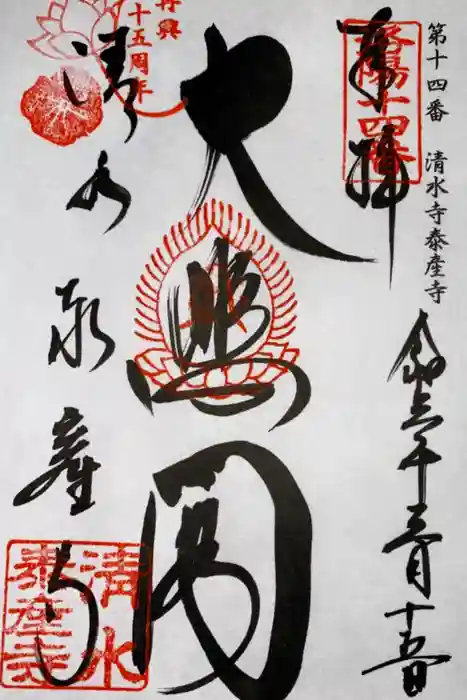 第十四番 清水寺泰産寺
奉拝
洛陽十四番
令和三年三月十五日
大悲閣
再興
十五周年
清水泰産寺
清水
泰産寺